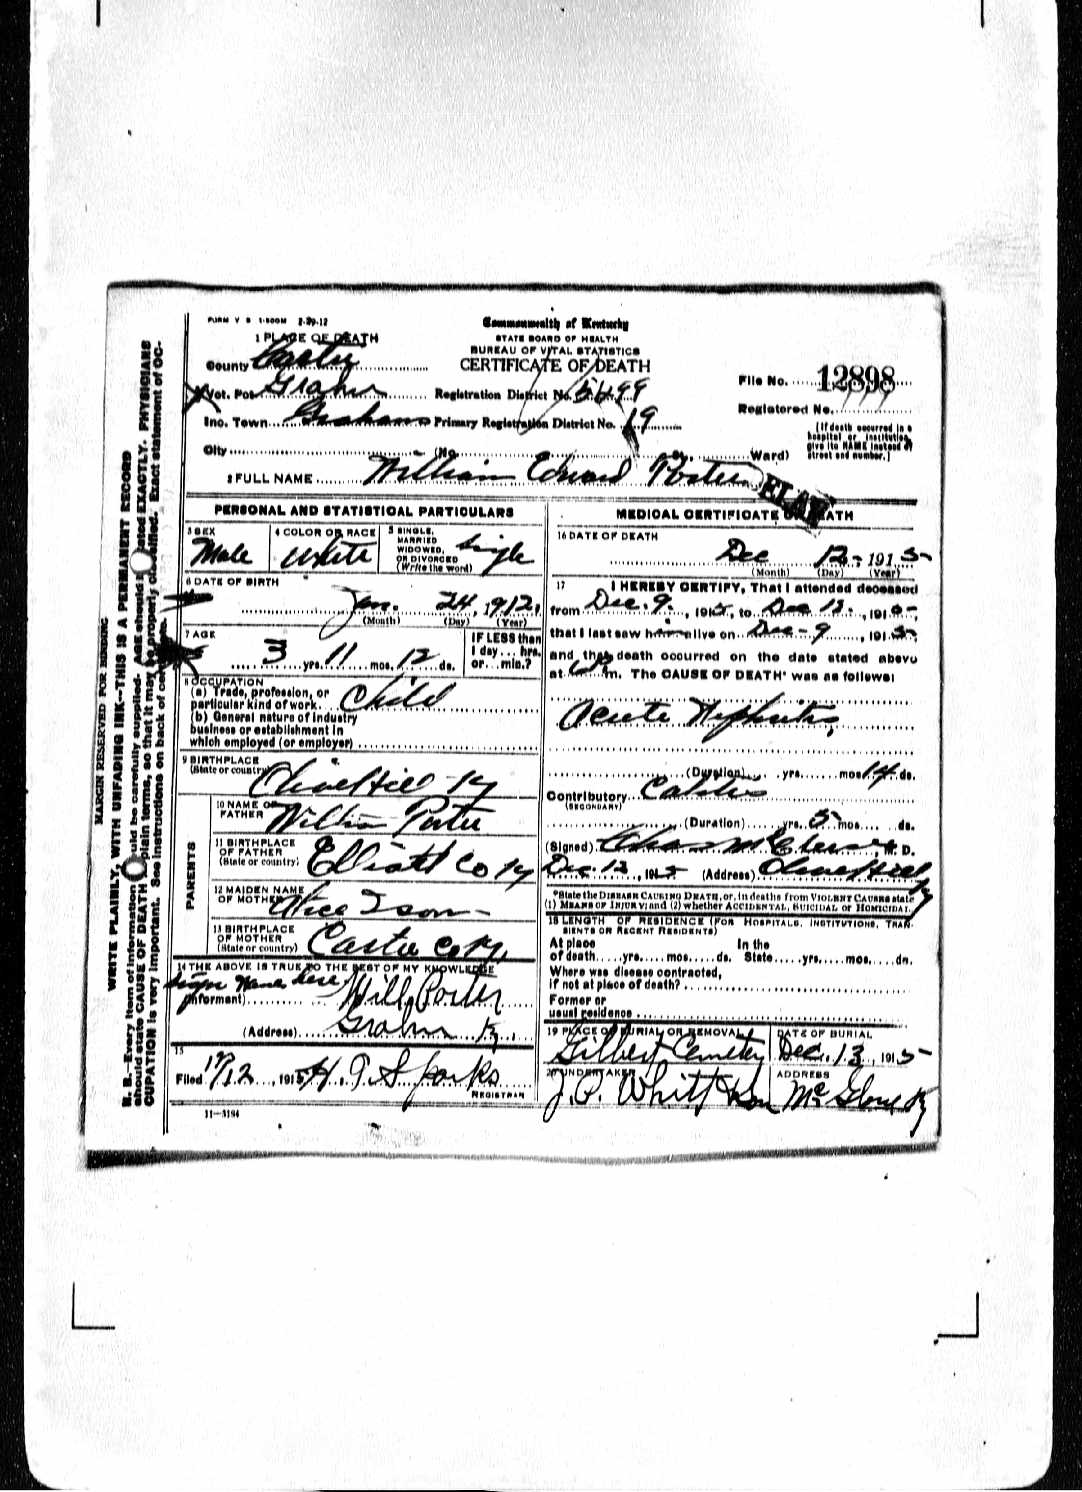 FORM V S 1-500M 2-29-12
Commonwealth of Kentucky
STATE BOARD OF HEALTH
BUREAU OF VITAL STATISTICS
CERTIFICATE OF DEATH
1 PLACE OF DEATH
County Carter
Vot. Pct Grahn
Registration District No.
File No. 12898
Inc. Town Grahn
Primary Registration District No.
Registered No.
City
(No.
Ward)
[If death occurred in a hospital or institution, give its NAME instead of street and number.]
2 FULL NAME William Edward Porter
PERSONAL AND STATISTICAL PARTICULARS
3 SEX Male
4 COLOR OR RACE White
5 SINGLE, MARRIED WIDOWED, OR DIVORCED (Write the word) Single
6 DATE OF BIRTH
Jan. 24, 1912.
(Month) (Day) (Year)
7 AGE
3 yrs. 11 mos. 12 ds.
IF LESS than 1 day... hrs. or... min.?
8 OCCUPATION
(a) Trade, profession, or particular kind of work Child
(b) General nature of industry business or establishment in which employed (or employer)
9 BIRTHPLACE (State or country) Olive Hill Ky
PARENTS
10 NAME OF FATHER Porter
11 BIRTHPLACE OF FATHER (State or country) Elliott Co Ky
12 MAIDEN NAME OF MOTHER Alice Ison
13 BIRTHPLACE OF MOTHER (State or country) Carter Co Ky.
14 THE ABOVE IS TRUE TO THE BEST OF MY KNOWLEDGE
sign Name here
(Informant) Will Porter
(Address) Grahn Ky.
15
Filed 12, 1915 Sparks
REGISTRAR
11—3184
MEDICAL CERTIFICATE OF DEATH
16 DATE OF DEATH
Dec 12 - 1915
(Month) (Day) (Year)
17 I HEREBY CERTIFY, That I attended deceased
from Dec. 9, 1915, to Dec 12, 1915,
that I last saw him alive on Dec - 9, 1915,
and that death occurred on the date stated above
at m. The CAUSE OF DEATH* was as follows:
Acute Nephritis,
(Duration) yrs. mos 14 ds.
Contributory Colitis
(SECONDARY)
(Duration) yrs. 5 mos. ds.
(Signed) M. D.
Dec. 12, 1915 (Address) Olive Hill Ky
*State the DISEASE CAUSING DEATH, or, in deaths from VIOLENT CAUSES state (1) MEANS OF INJURY; and (2) whether ACCIDENTAL, SUICIDAL or HOMICIDAL.
18 LENGTH OF RESIDENCE (FOR HOSPITALS, INSTITUTIONS, TRANSIENTS OR RECENT RESIDENTS)
At place of death yrs. mos. ds. In the State yrs. mos. ds.
Where was disease contracted,
if not at place of death?
Former or usual residence
19 PLACE OF BURIAL OR REMOVAL Gilbert Cemetery
DATE OF BURIAL Dec. 13, 1915
20 UNDERTAKER J. P. Whitt & Son
ADDRESS McGlone Ky
MARGIN RESERVED FOR BINDING
WRITE PLAINLY, WITH UNFADING INK—THIS IS A PERMANENT RECORD
N. B.—Every item of information should be carefully supplied. AGE should be stated EXACTLY. PHYSICIANS
should state CAUSE OF DEATH in plain terms, so that it may be properly classified. Exact statement of OC-
CUPATION is very important. See instructions on back of certificate.